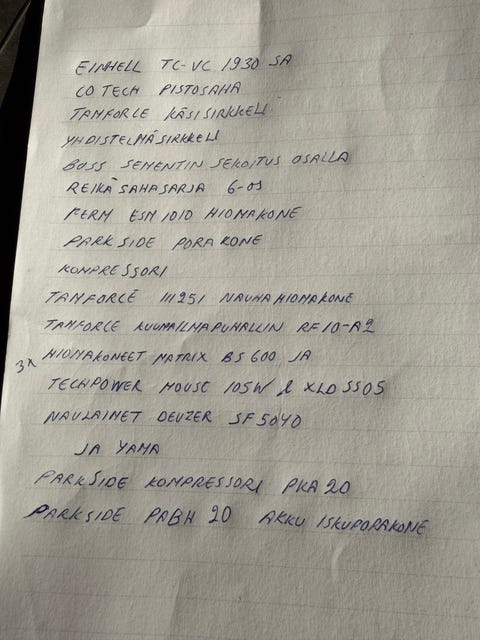 EINHELL TC-VC 1930 SA
COTECH PISTOSAHA
TAMFORCE KÄSISIRKKELI
YHDISTELMÄSIRKKELI
BOSS SEMENTIN SEKOITUS OSALLA
REIKÄSAHASARJA 6-OS
FERM ESM1010 HIOMAKONE
PARKSIDE PORAKONE
KOMPRESSORI
TAMFORCE 111251 NAUHAHIOMAKONE
TAMFORCE KUUMAILMAPUHALLIN RF10-A2
3X HIOMAKONEET MATRIX BS600 JA
TECHPOWER MOUSE 105W & XLD SS05
NAULAIMET DEUZER SF5040
JA YAMA
PARKSIDE KOMPRESSORI PKA20
PARKSIDE PABH 20 AKKU ISKUPORAKONE